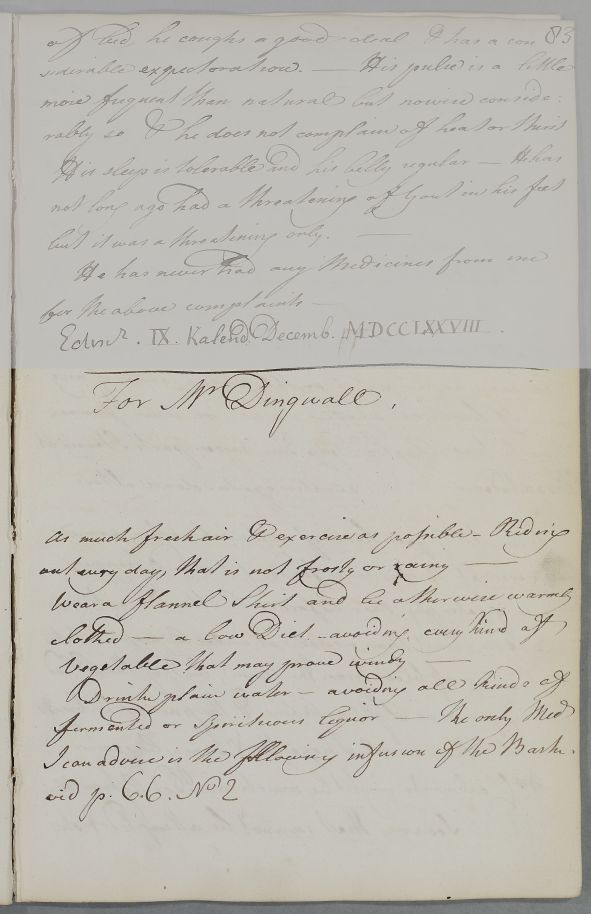 of bed he coughs a good deal & has a con 83
siderable expectoration. — His pulse is a little
more frequent than natural but nowise conside:
rably so & he does not complain of heat or thirst
His sleep is tolerable and his belly regular — He has
not long ago had a threatening of Gout in his feet
but it was a threatening only. —
He has never had any Medicines from me
for the above complaints —
Edinr. IX. Kalend. Decemb. MDCCLXXVIII.
For Mr Dingwall.
As much fresh air & exercise as possible – Riding
out every day, that is not frosty or rainy —
Wear a flannel Shirt and be otherwise warmly
clothed — a low Diet – avoiding every kind of
Vegetable that may prove windy —
Drink plain water – avoiding all kinds of
fermented or spirituous liquor — The only Med
I can advise is the following infusion of the Bark.
vid p. 66. No 2